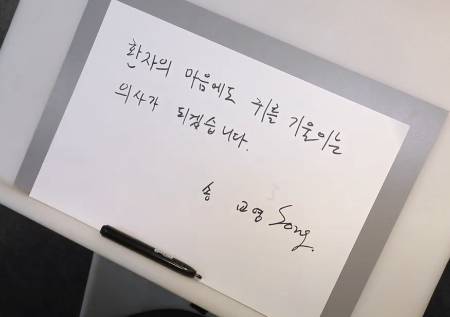 환자의 마음에도 귀를 기울이는
의사가 되겠습니다.
송 교영 Song.